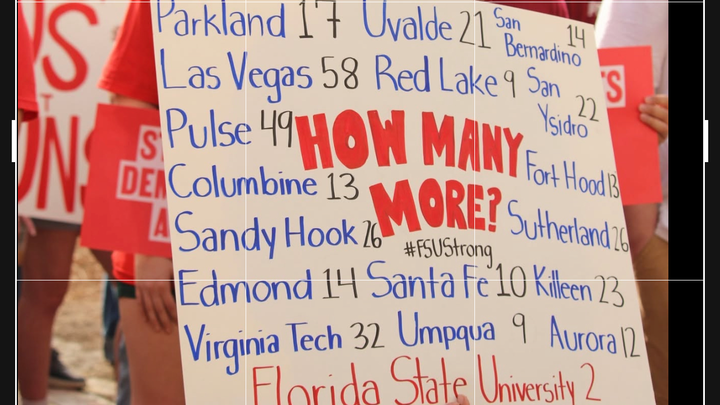 Parkland 17 Uvalde 21 San Bernardino 14
Las Vegas 58 Red Lake 9 San Ysidro 22
Pulse 49 HOW MANY MORE? Fort Hood 13
Columbine 13
Sandy Hook 26 #FSUStrong Sutherland 26
Edmond 14 Santa Fe 10 Killeen 23
Virginia Tech 32 Umpqua 9 Aurora 12
Florida State University 2